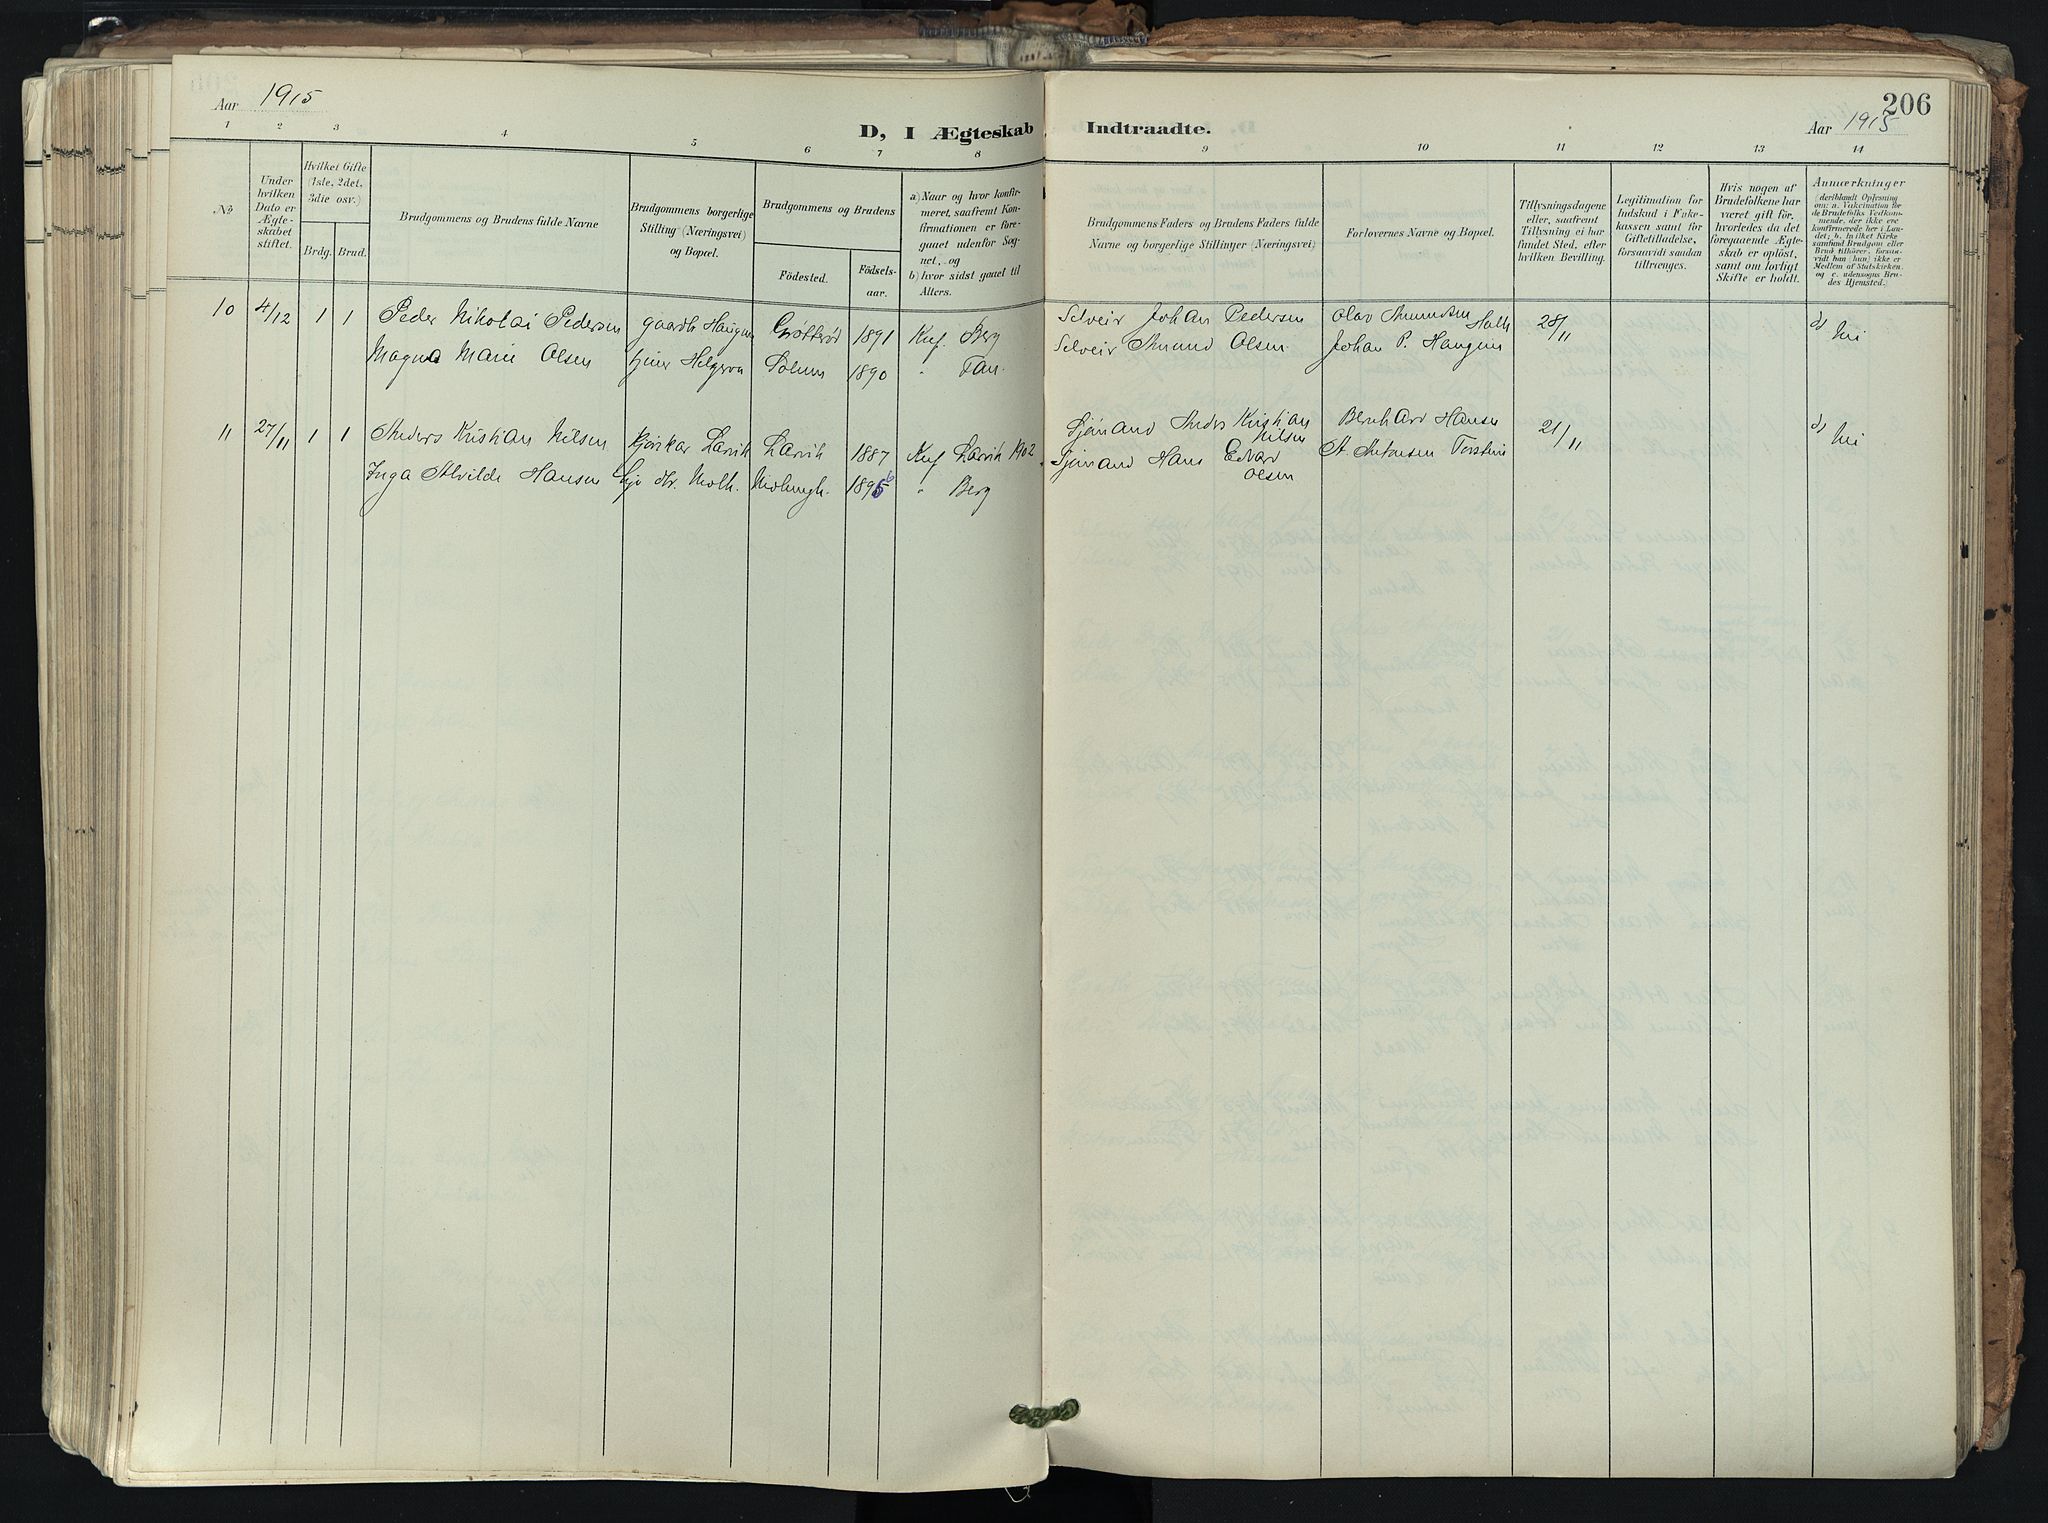 Aar 1915
D, I Ægteskab Indtraadte.
206
Aar 1915
1 2 3 4 5 6 7 8 9 10 11 12 13 14
No
Under hvilken Dato er Ægteskabet stiftet.
Hvilket Gifte (1ste, 2det, 3die osv.)
Brdg. Brud.
Brudgommens og Brudens fulde Navne
Brudgommens borgerlige Stilling (Næringsvei) og Bopæl.
Brudgommens og Brudens
Födested. Födselsaar.
a) Naar og hvor konfirmeret, saafremt Konfirmationen er foregaaet udenfor Sognet, og
b) hvor sidst gaaet til Alters.
Brudgommens Faders og Brudens Faders fulde Navne og borgerlige Stillinger (Næringsvei)
Forlovernes Navne og Bopæl.
Tillysningsdagene eller, saafremt Tillysning ei har fundet Sted, efter hvilken Bevilling.
Legitimation for Indskud i Enkekassen samt for Giftetilladelse, forsaavidt saadan tiltrænges.
Hvis nogen af Brudefolkene har været gift för, hvorledes da det foregaaende Ægteskab er oplöst, samt om lovligt Skifte er holdt.
Anmærkninger (deriblandt Oplysning om: a. Vakcination for de Brudefolks Vedkommende, der ikke ere konfirmerede her i Landet; b. in ilket Kirkesamfund Brudgom eller Brud tilhörer, forsaavidt han (hun) ikke er Medlem af Statskirken, og c. udensogns Brudes Hjemsted.
10 4/12 1 1 Peder Nikolai Pedersen gaardb Haugen 1891 Knf Berg Selveir Johan Pedersen Olav Amundsen 28/11 Nei
Magna Marie Olsen Solum 1890 " Tan. Selveir Amund Olsen Johan P. Haugen
11 27/11 1 1 Anders Kristian Nilsen Larvik Larvik 1887 Knf Larvik 1902 Sjömand Anders Kristian Nilsen Bernhard Hansen 21/11 Nei
Inga Alvilde Hansen 1896 " Berg Sjömand Hans Edvar Olsen